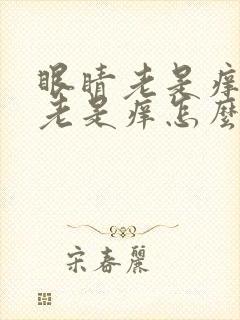 眼睛老是痒
老是痒怎麼
宋春麗